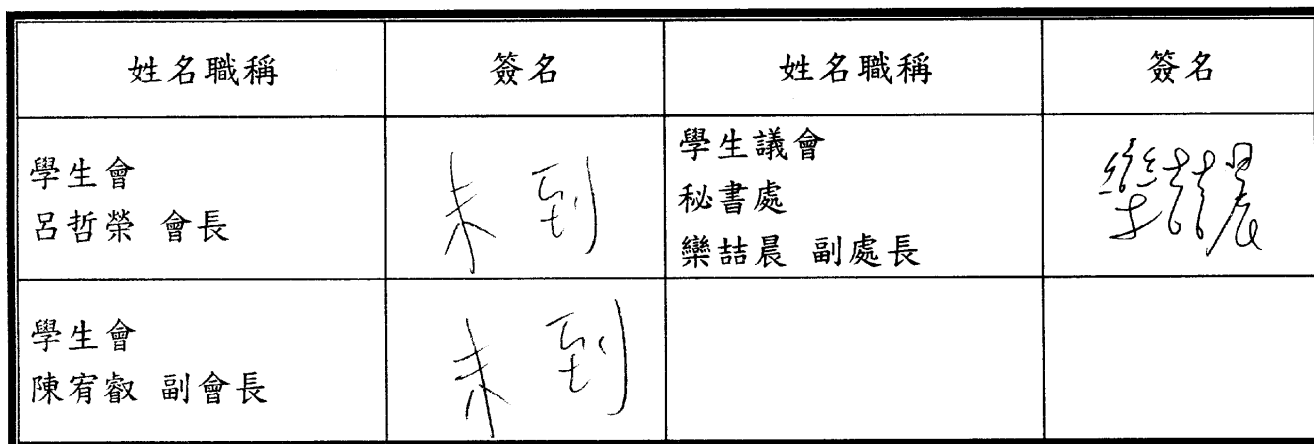 姓名職稱 簽名 姓名職稱 簽名
學生會
呂哲榮 會長
未到
學生議會
秘書處
欒喆晨 副處長
欒喆晨
學生會
陳宥叡 副會長
未到